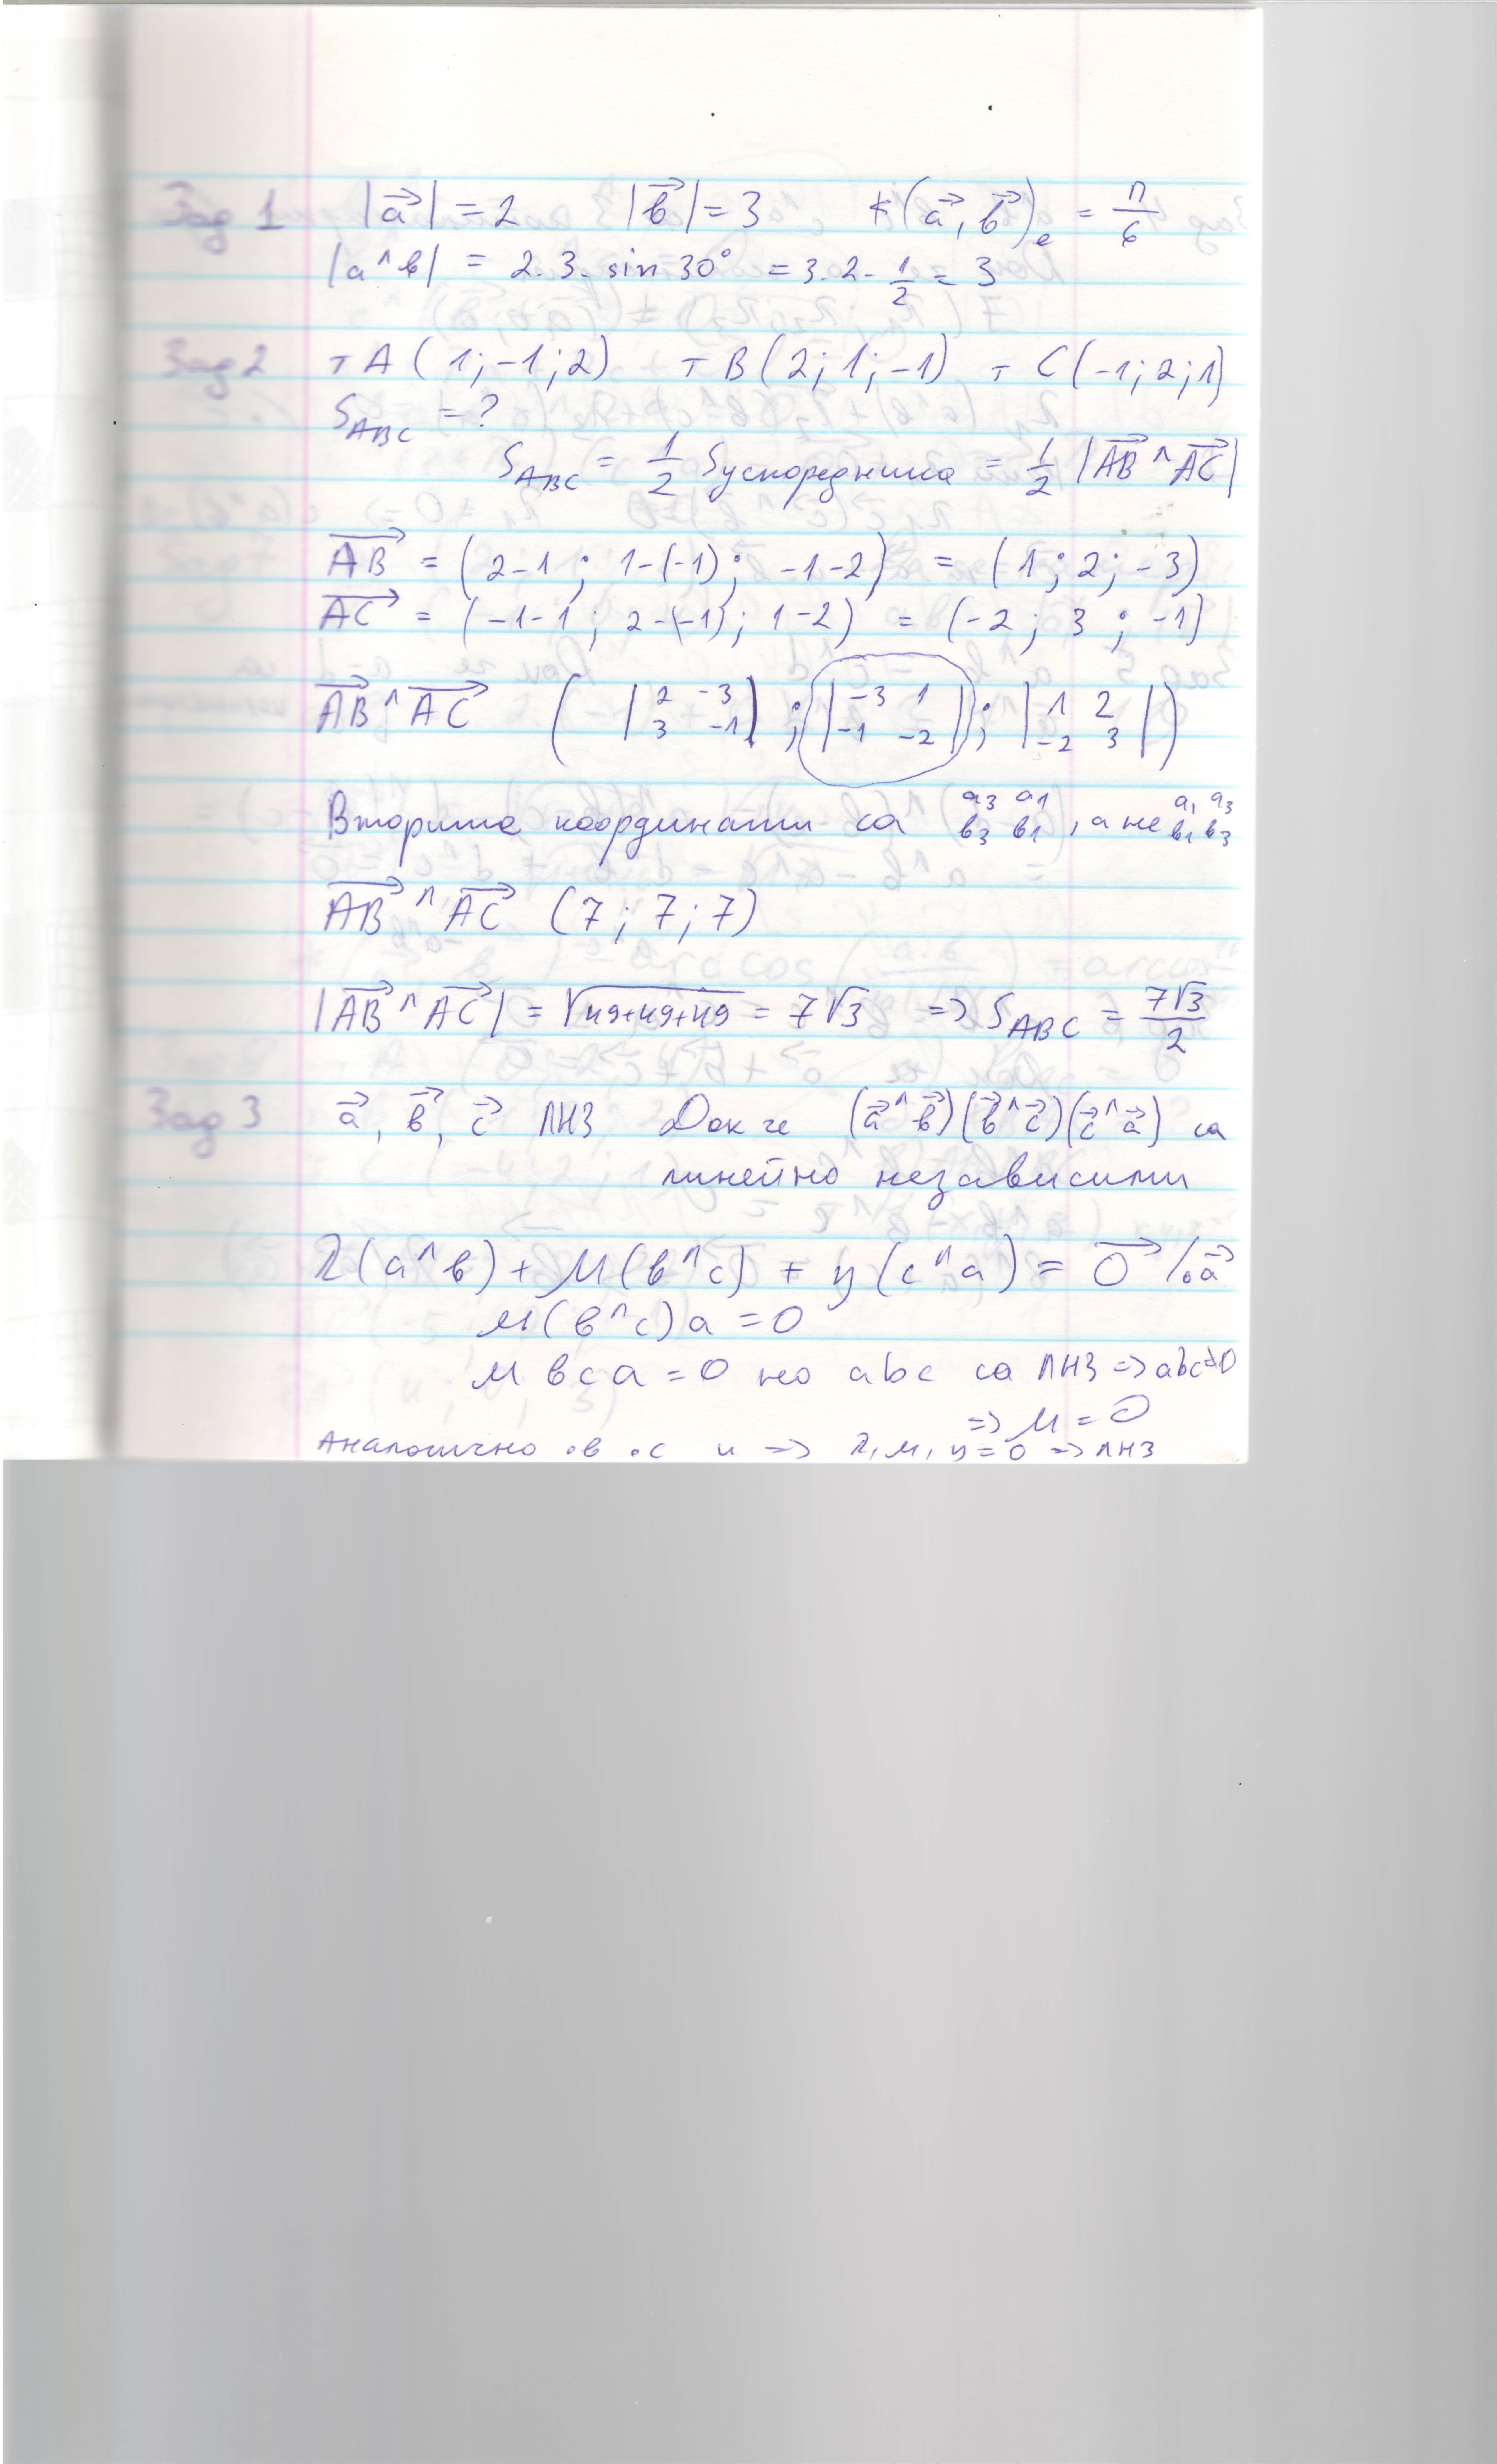 Зад 1 |a⃗| = 2 |в⃗| = 3 ∢(a⃗, в⃗)e = π/6
|a^в| = 2.3.sin 30° = 3.2.1/2 = 3
Зад 2 т A(1;-1;2) т B(2;1;-1) т C(-1;2;1)
S_ABC = ?
S_ABC = 1/2 Sуспоредника = 1/2 |AB⃗ ^ AC⃗|
AB⃗ = (2-1; 1-(-1); -1-2) = (1; 2; -3)
AC⃗ = (-1-1; 2-(-1); 1-2) = (-2; 3; -1)
AB⃗ ^ AC⃗ ( |2 -3; 3 -1| ; |-3 1; -1 -2| ; |1 2; -2 3| )
Вторите координати са a3 a1 в3 в1, а не a1 a3 в1 в3
AB⃗ ^ AC⃗ (7; 7; 7)
|AB⃗ ^ AC⃗| = √49+49+49 = 7√3 => S_ABC = 7√3/2
Зад 3 a⃗, в⃗, c⃗ ЛНЗ Док че (a⃗^в⃗)(в⃗^c⃗)(c⃗^a⃗) са
линейно независими
λ(a^в) + μ(в^c) + η(c^a) = 0⃗ /∘a⃗
μ(в^c)a = 0
μ в c a = 0 но abc са ЛНЗ => abc≠0
=> μ = 0
Аналогично .в .с и => λ, μ, η = 0 => ЛНЗ